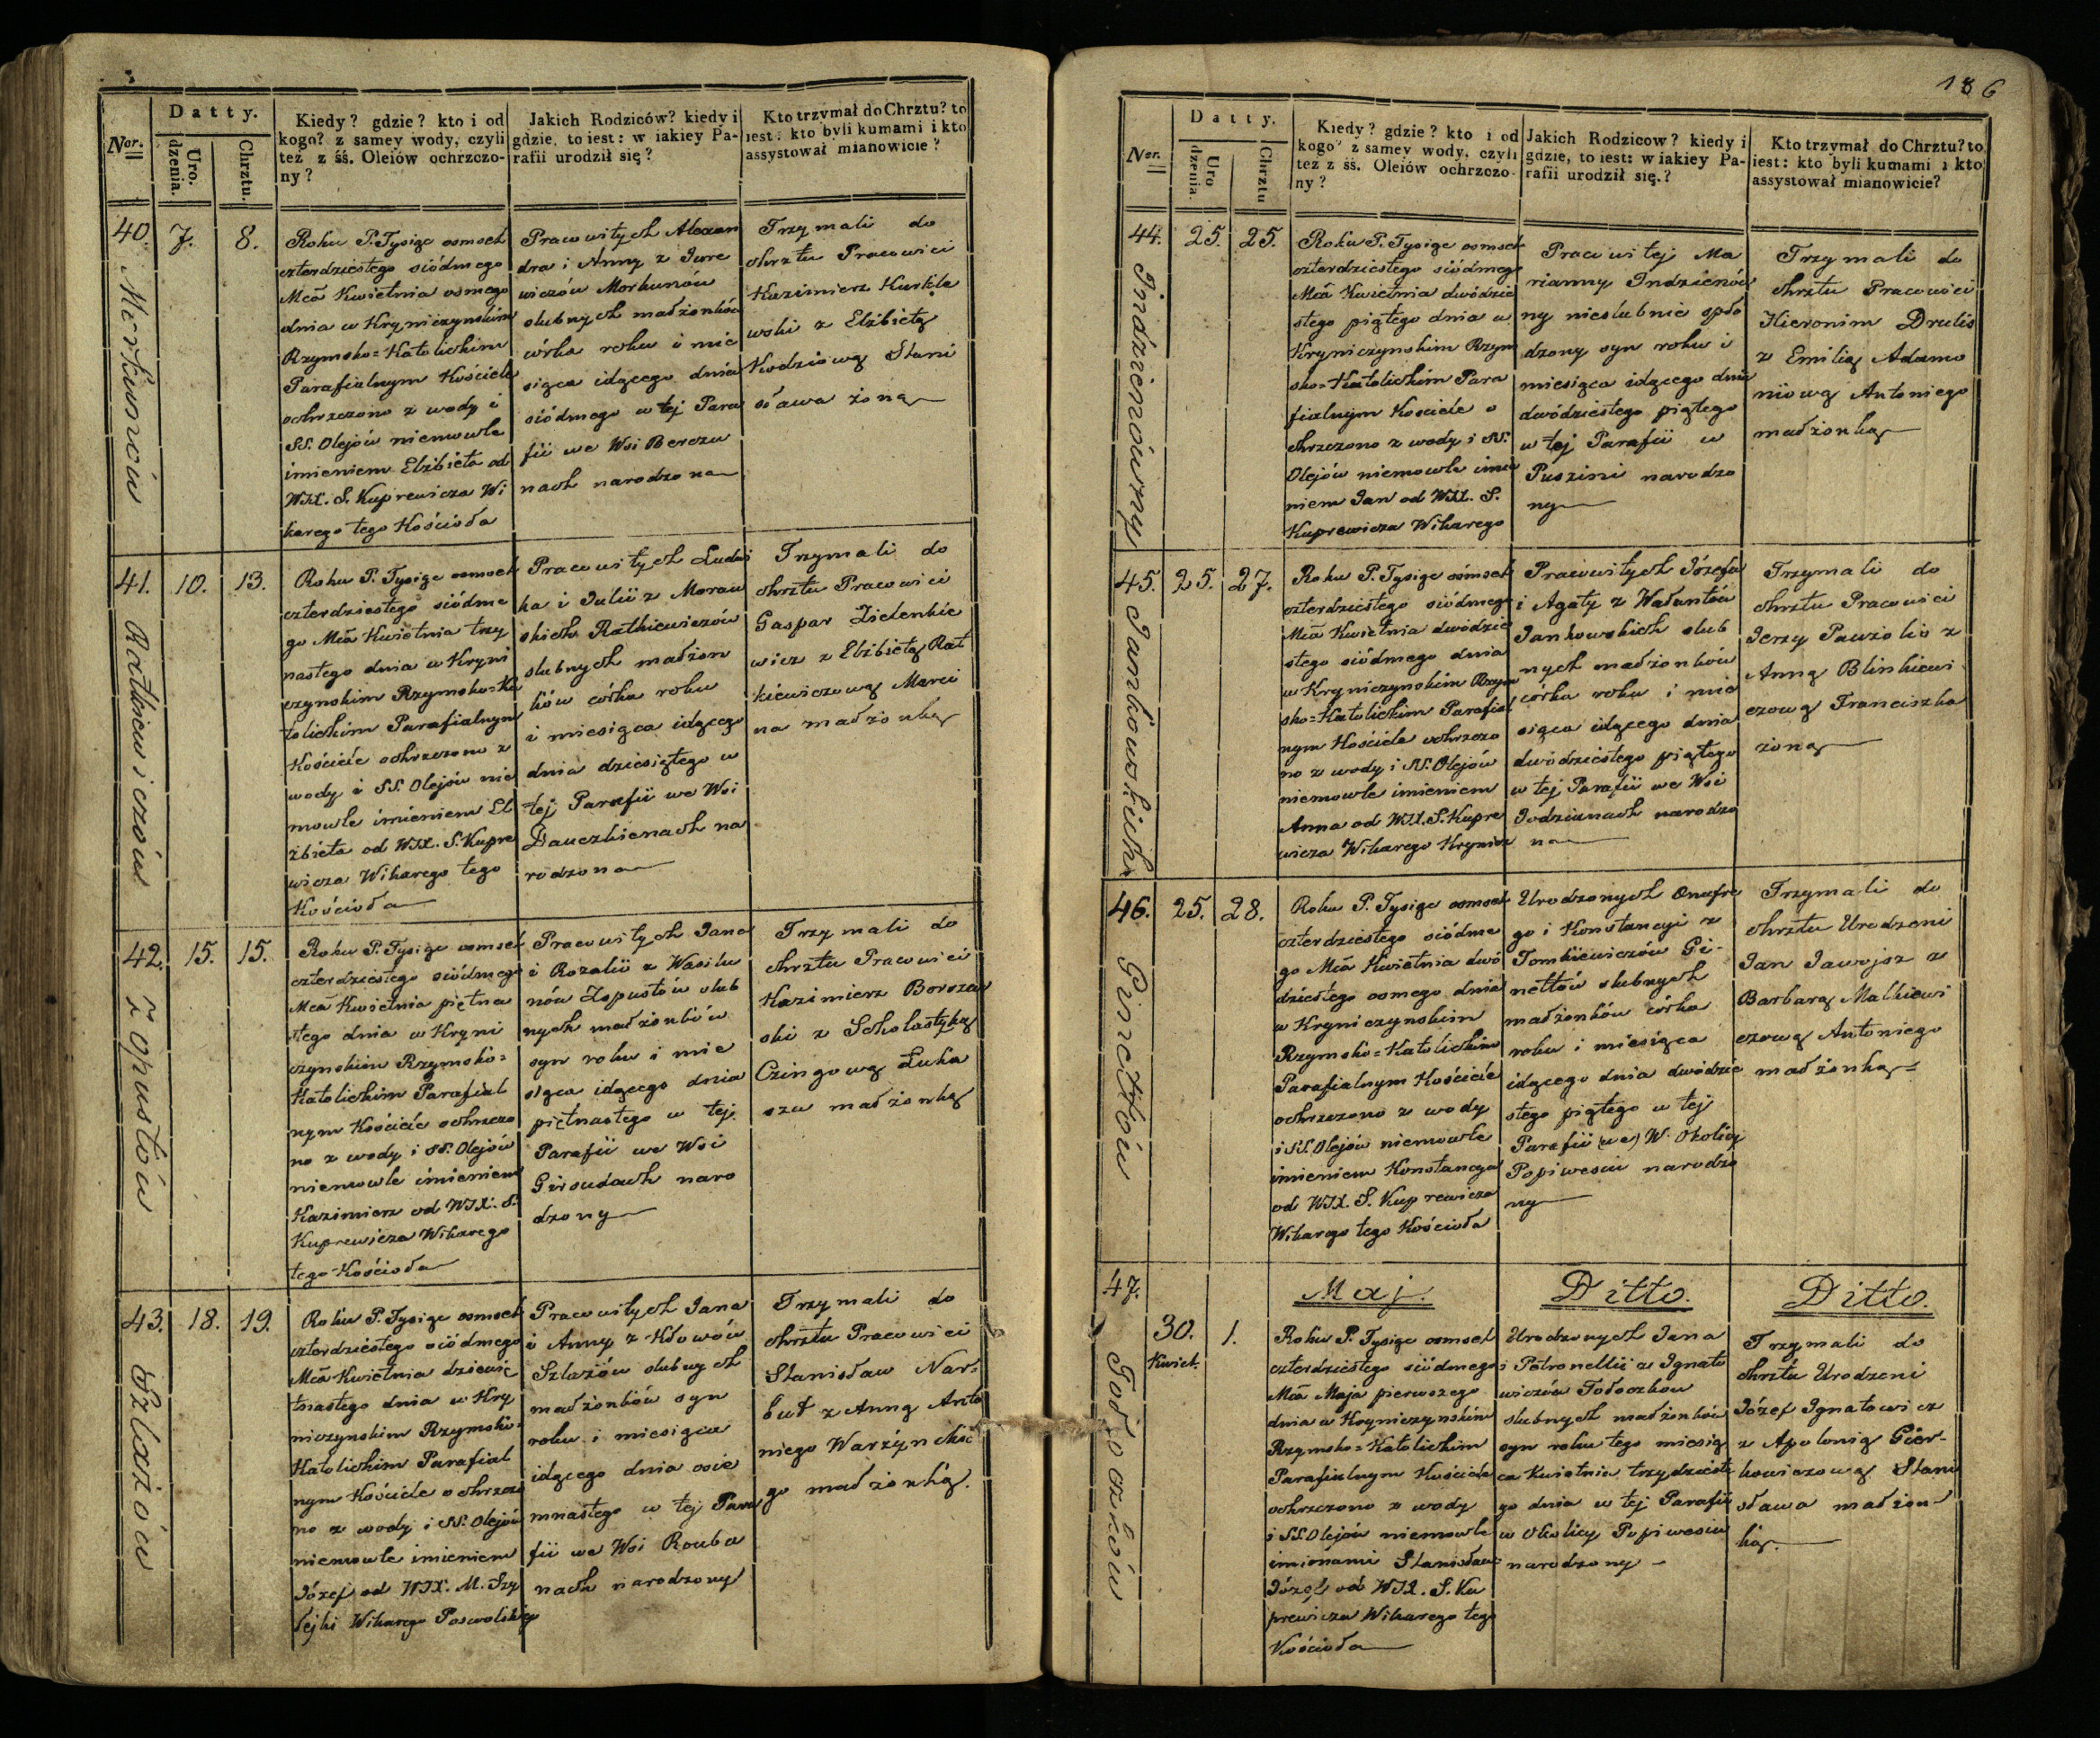 Nor.
Datty.
Uro.
dzenia.
Chrztu.
Kiedy? gdzie? kto i od
kogo? z samey wody, czyli
też z śś. Oleiów ochrzczo-
ny?
Jakich Rodziców? kiedy i
gdzie, to iest: w iakiey Pa-
rafii urodził się?
Kto trzymał do Chrztu? to
iest: kto byli kumami i kto
assystował mianowicie?
40.
Merkunów
7.
8.
Roku P. Tysiąc osmset
czterdziestego siódmego
Mca Kwietnia osmego
dnia w Kryniczynskim
Rzymsko=Katolickim
Parafialnym Kościele
ochrzczono z wody i
SS. Olejów niemowle
imieniem Elżbieta od
WJX. S. Kuprewicza Wi
karego tego Kościoła
Pracowitych Alexan
dra i Anny z Jure
wiczów Morkunów
slubnych małżonków
córka roku i mie
siąca idącego dnia
siódmego w tej Para
fii we Wsi Berczu
nach narodzona
Trzymali do
chrztu Pracowici
Kazimierz Kurkle
wski z Elżbietą
Kodziową Stani
sława żoną
41.
Ratkiewiczów
10.
13.
Roku P. Tysiąc osmset
czterdziestego siódme
go Mca Kwietnia trzy
nastego dnia w Kryni
czynskim Rzymsko=Ka
tolickim Parafialnym
Kościele ochrzczono z
wody i SS. Olejów nie
mowle imieniem El
żbieta od WJX. S. Kupre
wicza Wikarego tego
Kościoła
Pracowitych Ludwi
ka i Julii z Moraw
skich Ratkiewiczów
slubnych małżon
ków córka roku
i miesiąca idącego
dnia dziesiątego w
tej Parafii we Wsi
Dauczkienach na
rodzona
Trzymali do
chrztu Pracowici
Gaspar Zielenkie
wicz z Elżbietą Rat
kiewiczową Marci
na małżonką
42.
Zopustów
15.
15.
Roku P. Tysiąc osmset
czterdziestego siódmego
Mca Kwietnia piętna
stego dnia w Kryni
czynskim Rzymsko=
Katolickim Parafial
nym Kościele ochrzczo
no z wody i SS. Olejów
niemowle imieniem
Kazimierz od WJX. S.
Kuprewicza Wikarego
tego Kościoła
Pracowitych Jana
i Rozalii z Wasilu
nów Zopustow slub
nych małżonków
syn roku i mie
siąca idącego dnia
piętnastego w tej
Parafii we Wsi
Girsudach naro
dzony
Trzymali do
chrztu Pracowici
Kazimierz Borszow
ski z Scholastyką
Czingową Łuka
sza małżonką
43.
Szlażów
18.
19.
Roku P. Tysiąc osmset
czterdziestego siódmego
Mca Kwietnia dziewię
tnastego dnia w Kry
niczynskim Rzymsko=
Katolickim Parafial
nym Kościele ochrzczo
no z wody i SS. Olejów
niemowle imieniem
Józef od WJX. M. Szy
łejki Wikarego Poswolskiego
Pracowitych Jana
i Anny z Kłowów
Szlażów slubnych
małżonków syn
roku i miesiąca
idącego dnia osie
mnastego w tej Para
fii we Wsi Rouba
nach narodzony
Trzymali do
chrztu Pracowici
Stanisław Nar=
but z Anną Anto
niego Warżynckie
go małżonką.
186
Nor.
Datty.
Uro
dzenia.
Chrztu
Kiedy? gdzie? kto i od
kogo? z samey wody, czyli
też z śś. Oleiów ochrzczo-
ny?
Jakich Rodzicow? kiedy i
gdzie, to iest: w iakiey Pa-
rafii urodził się.?
Kto trzymał do Chrztu? to
iest: kto byli kumami i kto
assystował mianowicie?
44.
Indzienówzny
25.
25.
Roku P. Tysiąc osmset
czterdziestego siódmego
Mca Kwietnia dwódzie
stego piątego dnia w
Kryniczynskim Rzym
sko=Katolickim Para
fialnym Kosciele o
chrzczono z wody i SS.
Olejów niemowle imie
niem Jan od WJX. S.
Kuprewicza Wikarego
Pracowitej Ma
rianny Indzienów
ny nieslubnie spło
dzony syn roku i
miesiąca idącego dnia
dwódziestego piątego
w tej Parafii w
Puszini narodzo
ny
Trzymali do
chrztu Pracowici
Hieronim Drulis
z Emilią Adamo
niową Antoniego
małżonką
45.
Jankowskich
25.
27.
Roku P. Tysiąc osmset
czterdziestego siódmego
Mca Kwietnia dwódzie
stego siódmego dnia
w Kryniczynskim Rzym
sko=Katolickim Parafial
nym Kościele ochrzczo
no z wody i SS. Olejów
niemowle imieniem
Anna od WJX. S. Kupre
wicza Wikarego Krynicz
Pracowitych Józefa
i Agaty z Wałuntów
Jankowskich slub
nych małżonków
córka roku i mie
siąca idącego dnia
dwódziestego piątego
w tej Parafii we Wsi
Jodziunach narodzo
na
Trzymali do
chrztu Pracowici
Jerzy Pawżolis z
Anną Blinkiewi
czową Franciszka
żoną
46.
Ginettów
25.
28.
Roku P. Tysiąc osmset
czterdziestego siódme
go Mca Kwietnia dwó
dziestego osmego dnia
w Kryniczynskim
Rzymsko=Katolickim
Parafialnym Kościele
ochrzczono z wody
i SS. Olejów niemowle
imieniem Konstancya
od WJX. S. Kuprewicza
Wikarego tego Kościoła
Urodzonych Onufre
go i Konstancyi z
Tomkiewiczów Gi-
nettów slubnych
małżonków córka
roku i miesiąca
idącego dnia dwódzie
stego piątego w tej
Parafii (we) W. Okolicy
Popiwesiu narodzo
ny
Trzymali do
chrztu Urodzeni
Jan Jawojsz z
Barbarą Malkiewi
czową Antoniego
małżonką=
47.
Tołoczków
30.
Kwiet.
1.
Maj.
Ditto.
Ditto.
Roku P. Tysiąc osmset
czterdziestego siódmego
Mca Maja pierwszego
dnia w Kryniczynskim
Rzymsko=Katolickim
Parafialnym Kościele
ochrzczono z wody
i SS. Olejów niemowle
imionami Stanisław=
Józef od WJX. S. Ku
prewicza Wikarego tego
Kościoła
Urodzonych Jana
i Petronelli z Ignato
wiczów Tołoczkow
slubnych małżonków
syn roku tego miesią
ca Kwietnia trzydzieste
go dnia w tej Parafii
w Okolicy Popiwesiu
narodzony
Trzymali do
chrztu Urodzeni
Józef Ignatowicz
z Apolonią Gier-
kowiczową Stani
sława małżon
ką.